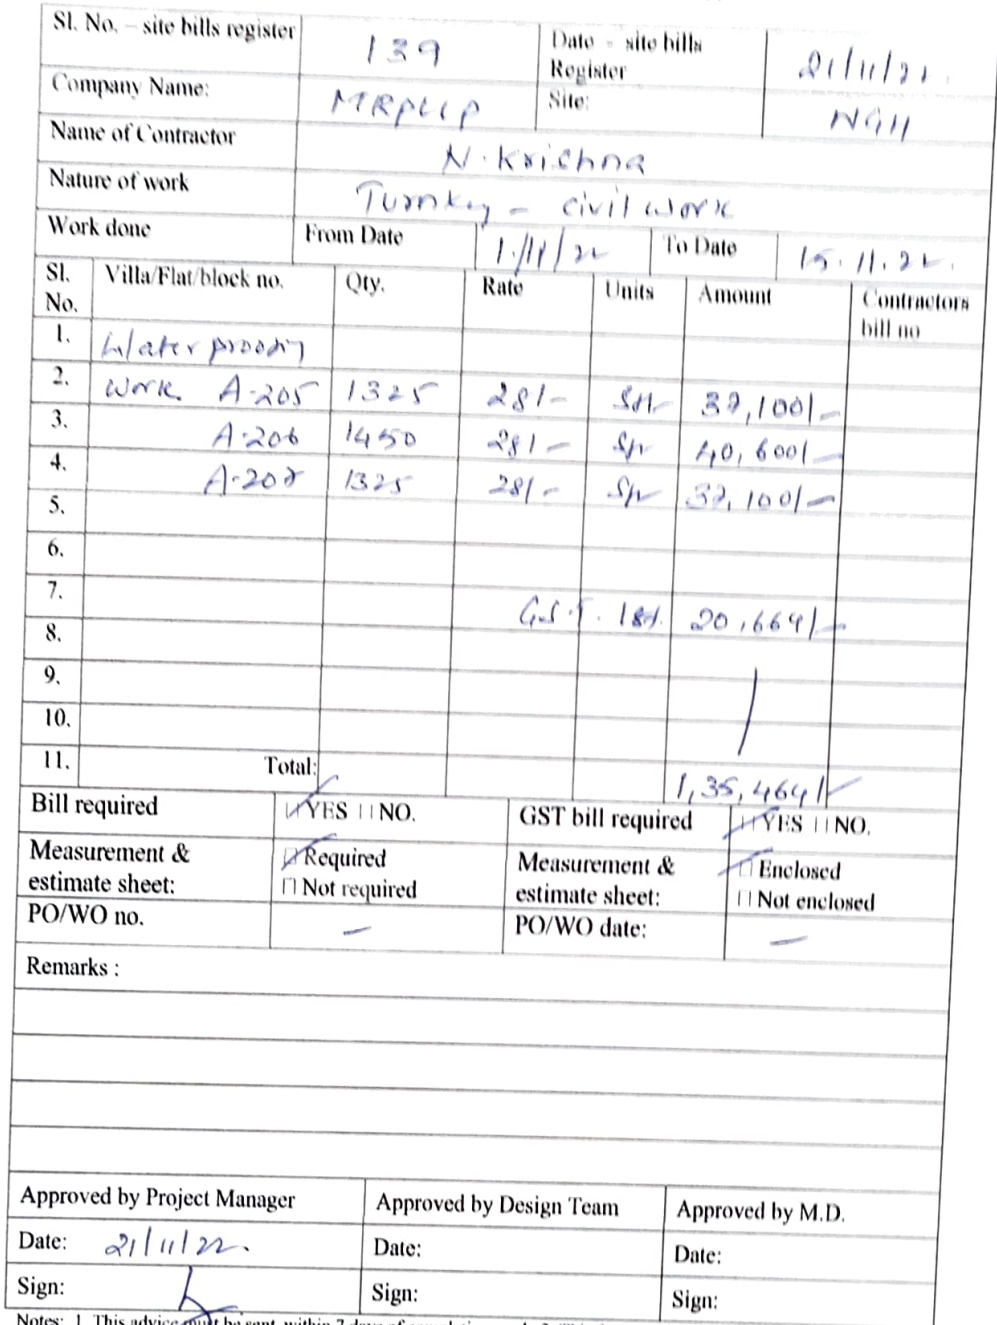 Sl. No. – site bills register 139 Date – site bills Register 21/11/22.
Company Name: MRPLLP Site: NGH
Name of Contractor N. Krishna
Nature of work Turnkey – civil work
Work done From Date 1/11/22 To Date 15.11.22.
Sl. No. Villa/Flat/block no. Qty. Rate Units Amount Contractors bill no
1. Water proofing
2. work A-205 1325 28/- Sft 37,100/-
3. A-206 1450 28/- Sft 40,600/-
4. 1325 28/- Sft 37,100/-
5.
6.
7. G.S.T. 18% 20,664/-
8.
9.
10.
11. Total: 1,35,464/-
Bill required YES NO. GST bill required YES NO.
Measurement & estimate sheet: Required Not required Measurement & estimate sheet: Enclosed Not enclosed
PO/WO no. – PO/WO date: –
Remarks :
Approved by Project Manager Approved by Design Team Approved by M.D.
Date: 21/11/22. Date: Date:
Sign: Sign: Sign:
Notes: 1. This advice must be sent within 7 days of